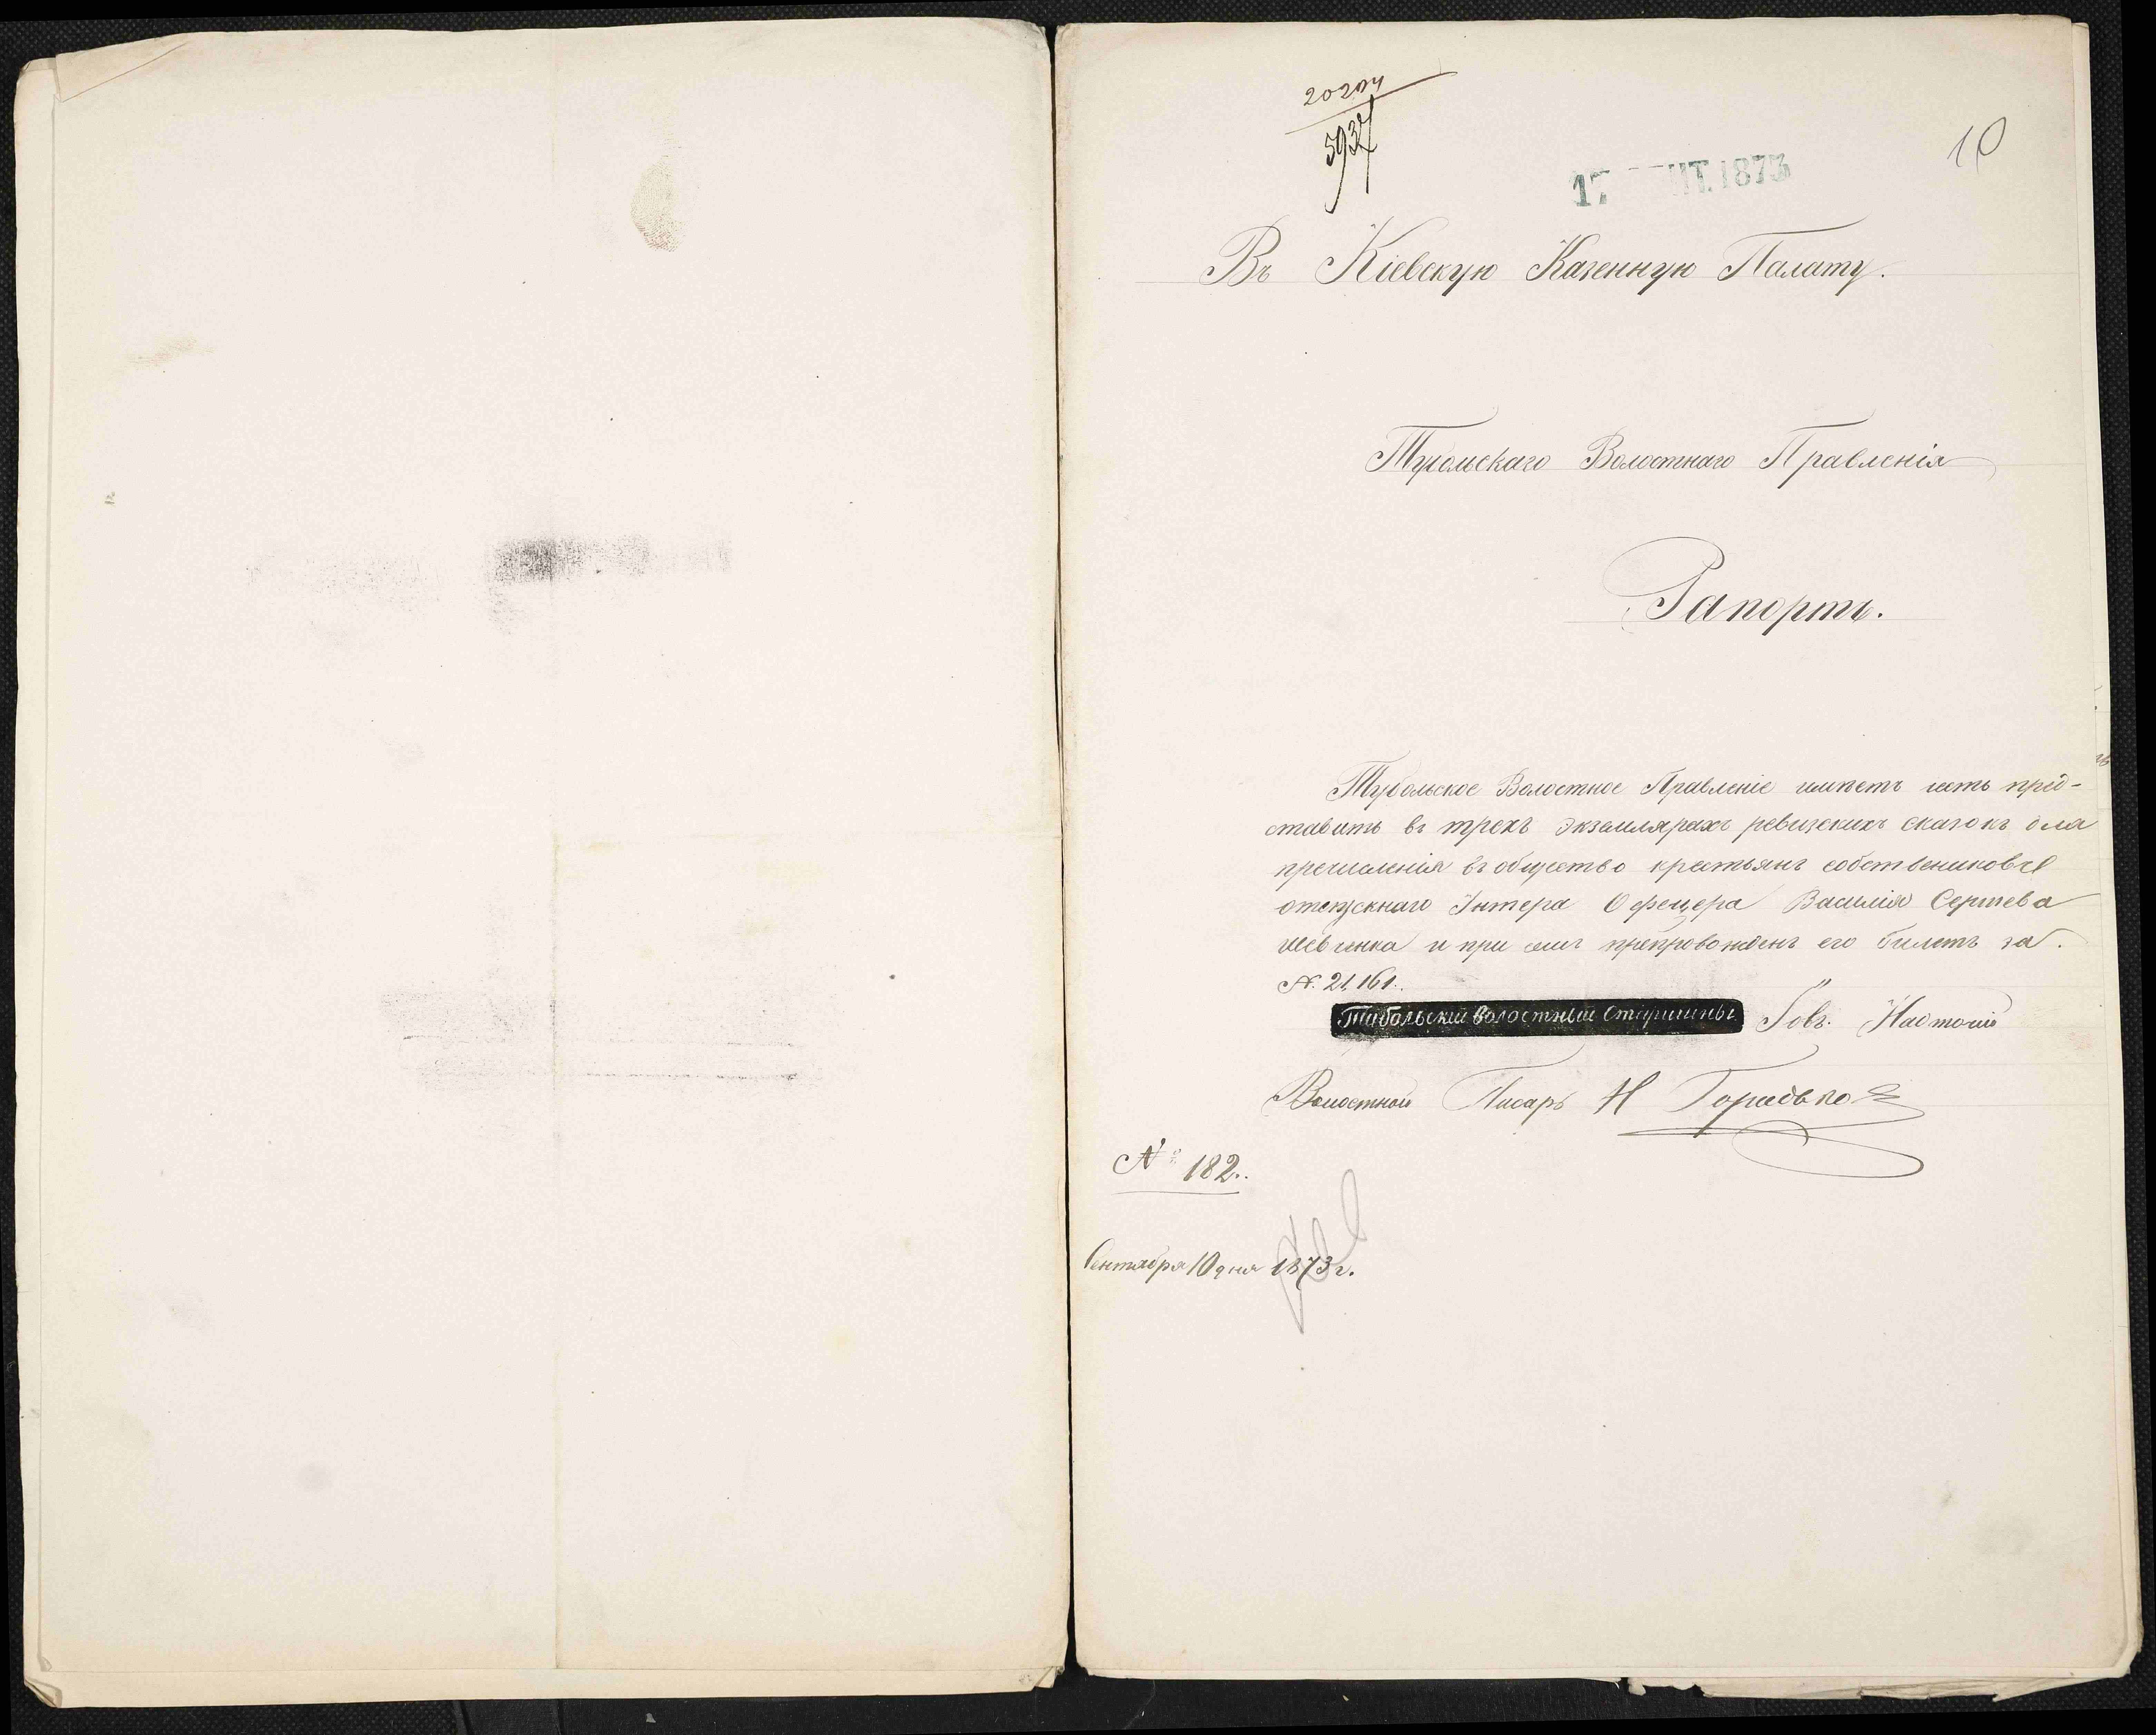 5937
10
17 СЕНТ. 1873
Въ Кіевскую Казенную Палату.
Тубольскаго Волостнаго Правленія
Рапортъ.
Тубольское Волостное Правленіе имѣетъ честь пред-
ставить въ трехъ экземлярахъ ревизскихъ сказокъ для
пречисленія въ общество крестьянъ собствениковъ
отпускнаго Унтера Офецера Василія Сергѣева
Шевченка и при семъ препровождѣнъ его билетъ за.
№ 21,161.
Тубольскій Волостный Старшины
Волостной Писарь Н
№ 182.
Сентября 10 дня 1873 г.